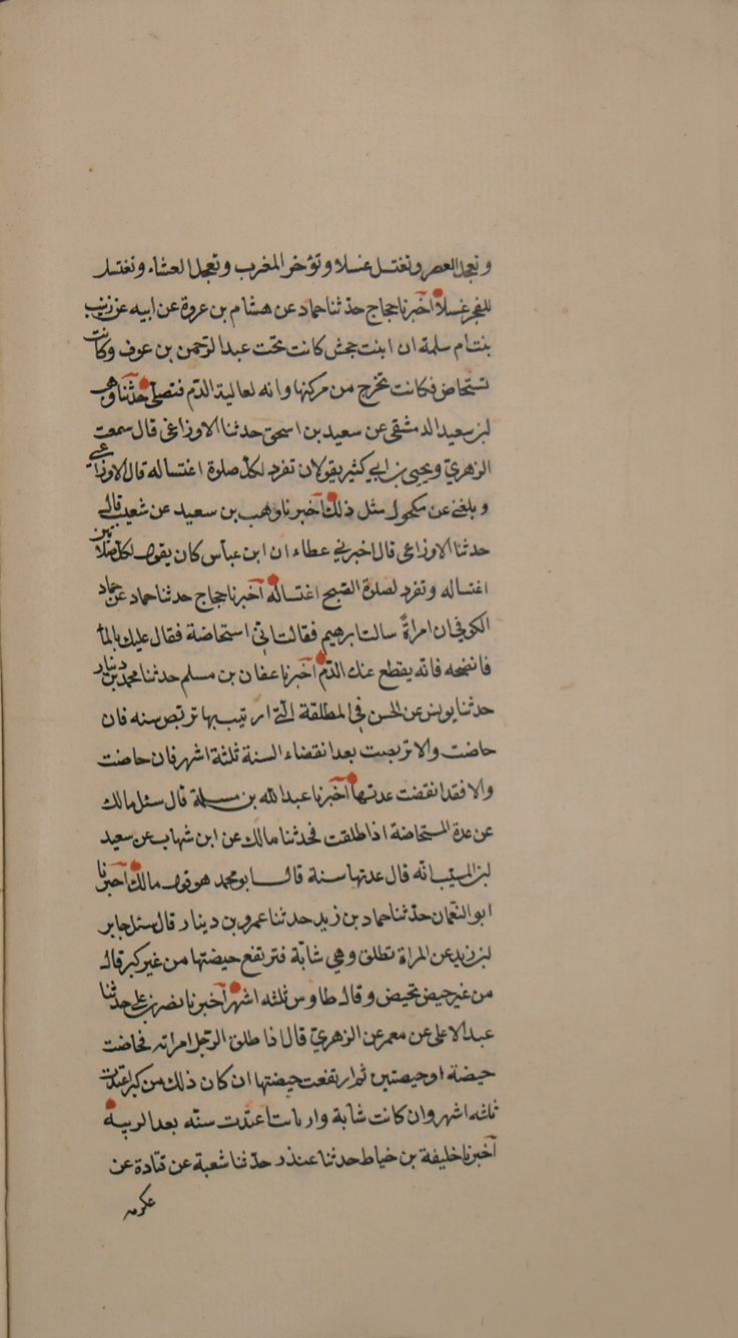 وتعجل العصر وتغتسل غسلا وتؤخر المغرب وتعجل العشاء وتغتسل
للفجر غسلا أخبرنا حجاج حدثنا حماد عن هشام بن عروة عن ابيه عن زينب
بنت ام سلمة ان ابنت جحش كانت تحت عبد الرحمن بن عوف وكانت
تستحاض فكانت تخرج من مركنها وانه لعالية الدم فتصلي حدثنا وهب
بن سعيد الدمشقي عن سعيد بن اسحق حدثنا الاوزاعي قال سمعت
الزهري ويحيى بن ابي كثير يقولان تفرد لكل صلوة اغتساله قال الاوزاعي
وبلغني عن مكحول مثل ذلك أخبرنا وهب بن سعيد عن شعيب قال
حدثنا الاوزاعي قال اخبرني عطاء ان ابن عباس كان يقول لكل صلاتين
اغتساله وتفرد لصلوة الصبح اغتساله أخبرنا حجاج حدثنا حماد عن حماد
الكوفي ان امراة سالت ابرهيم فقالت اني استحاضة فقال عليك بالماء
فانضحه فانه يقطع عنك الدم أخبرنا عفان بن مسلم حدثنا محمد بن دينار
حدثنا يونس عن الحسن في المطلقة التي ارتيب بها تربص سنه فان
حاضت والا تربصت بعد انقضاء السنة ثلثة اشهر فان حاضت
والا فقد انقضت عدتها أخبرنا عبد الله بن مسلمة قال سئل مالك
عن عدة المستحاضة اذا طلقت فحدثنا مالك عن ابن شهاب عن سعيد
بن المسيب انه قال عدتها سنة قال ابو محمد هو قول مالك أخبرنا
ابو النعمان حدثنا حماد بن زيد حدثنا عمرو بن دينار قال سئل جابر
بن زيد عن المراة تطلق وهي شابة فترتفع حيضتها من غير كبر قال
من غير حيض تحيض وقال طاوس ثلثه اشهر أخبرنا نصر بن علي حدثنا
عبد الاعلى عن معمر عن الزهري قال اذا طلق الرجل امراته فحاضت
حيضة او حيضتين ثم ارتفعت حيضتها ان كان ذلك من كبر اعتدت
ثلثه اشهر وان كانت شابة وارتابت اعتدت سنه بعد الريبه
أخبرنا خليفة بن خياط حدثنا غندر حدثنا شعبة عن قتادة عن
عكرمه